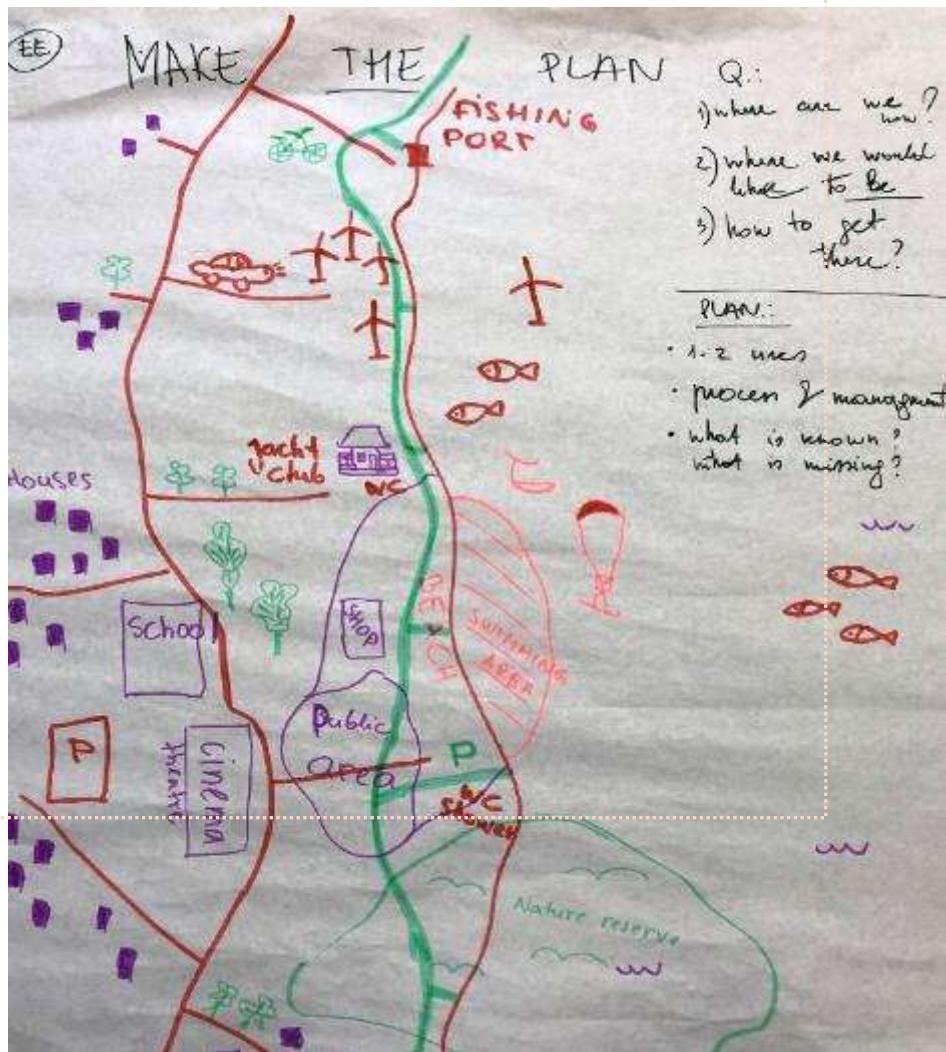 EE
MAKE THE PLAN
FISHING
PORT
Q.:
1) where are we
now?
2) where we would
to Be
3) how to get
there?
PLAN:
• 1-2 uses
• process & managment
• what is known?
what is missing?
Yacht
Club
WC
Houses
School
SHOP
BEACH
SWIMMING
AREA
Public
area
P
P
Cinema
theatre
WC
Nature reserve